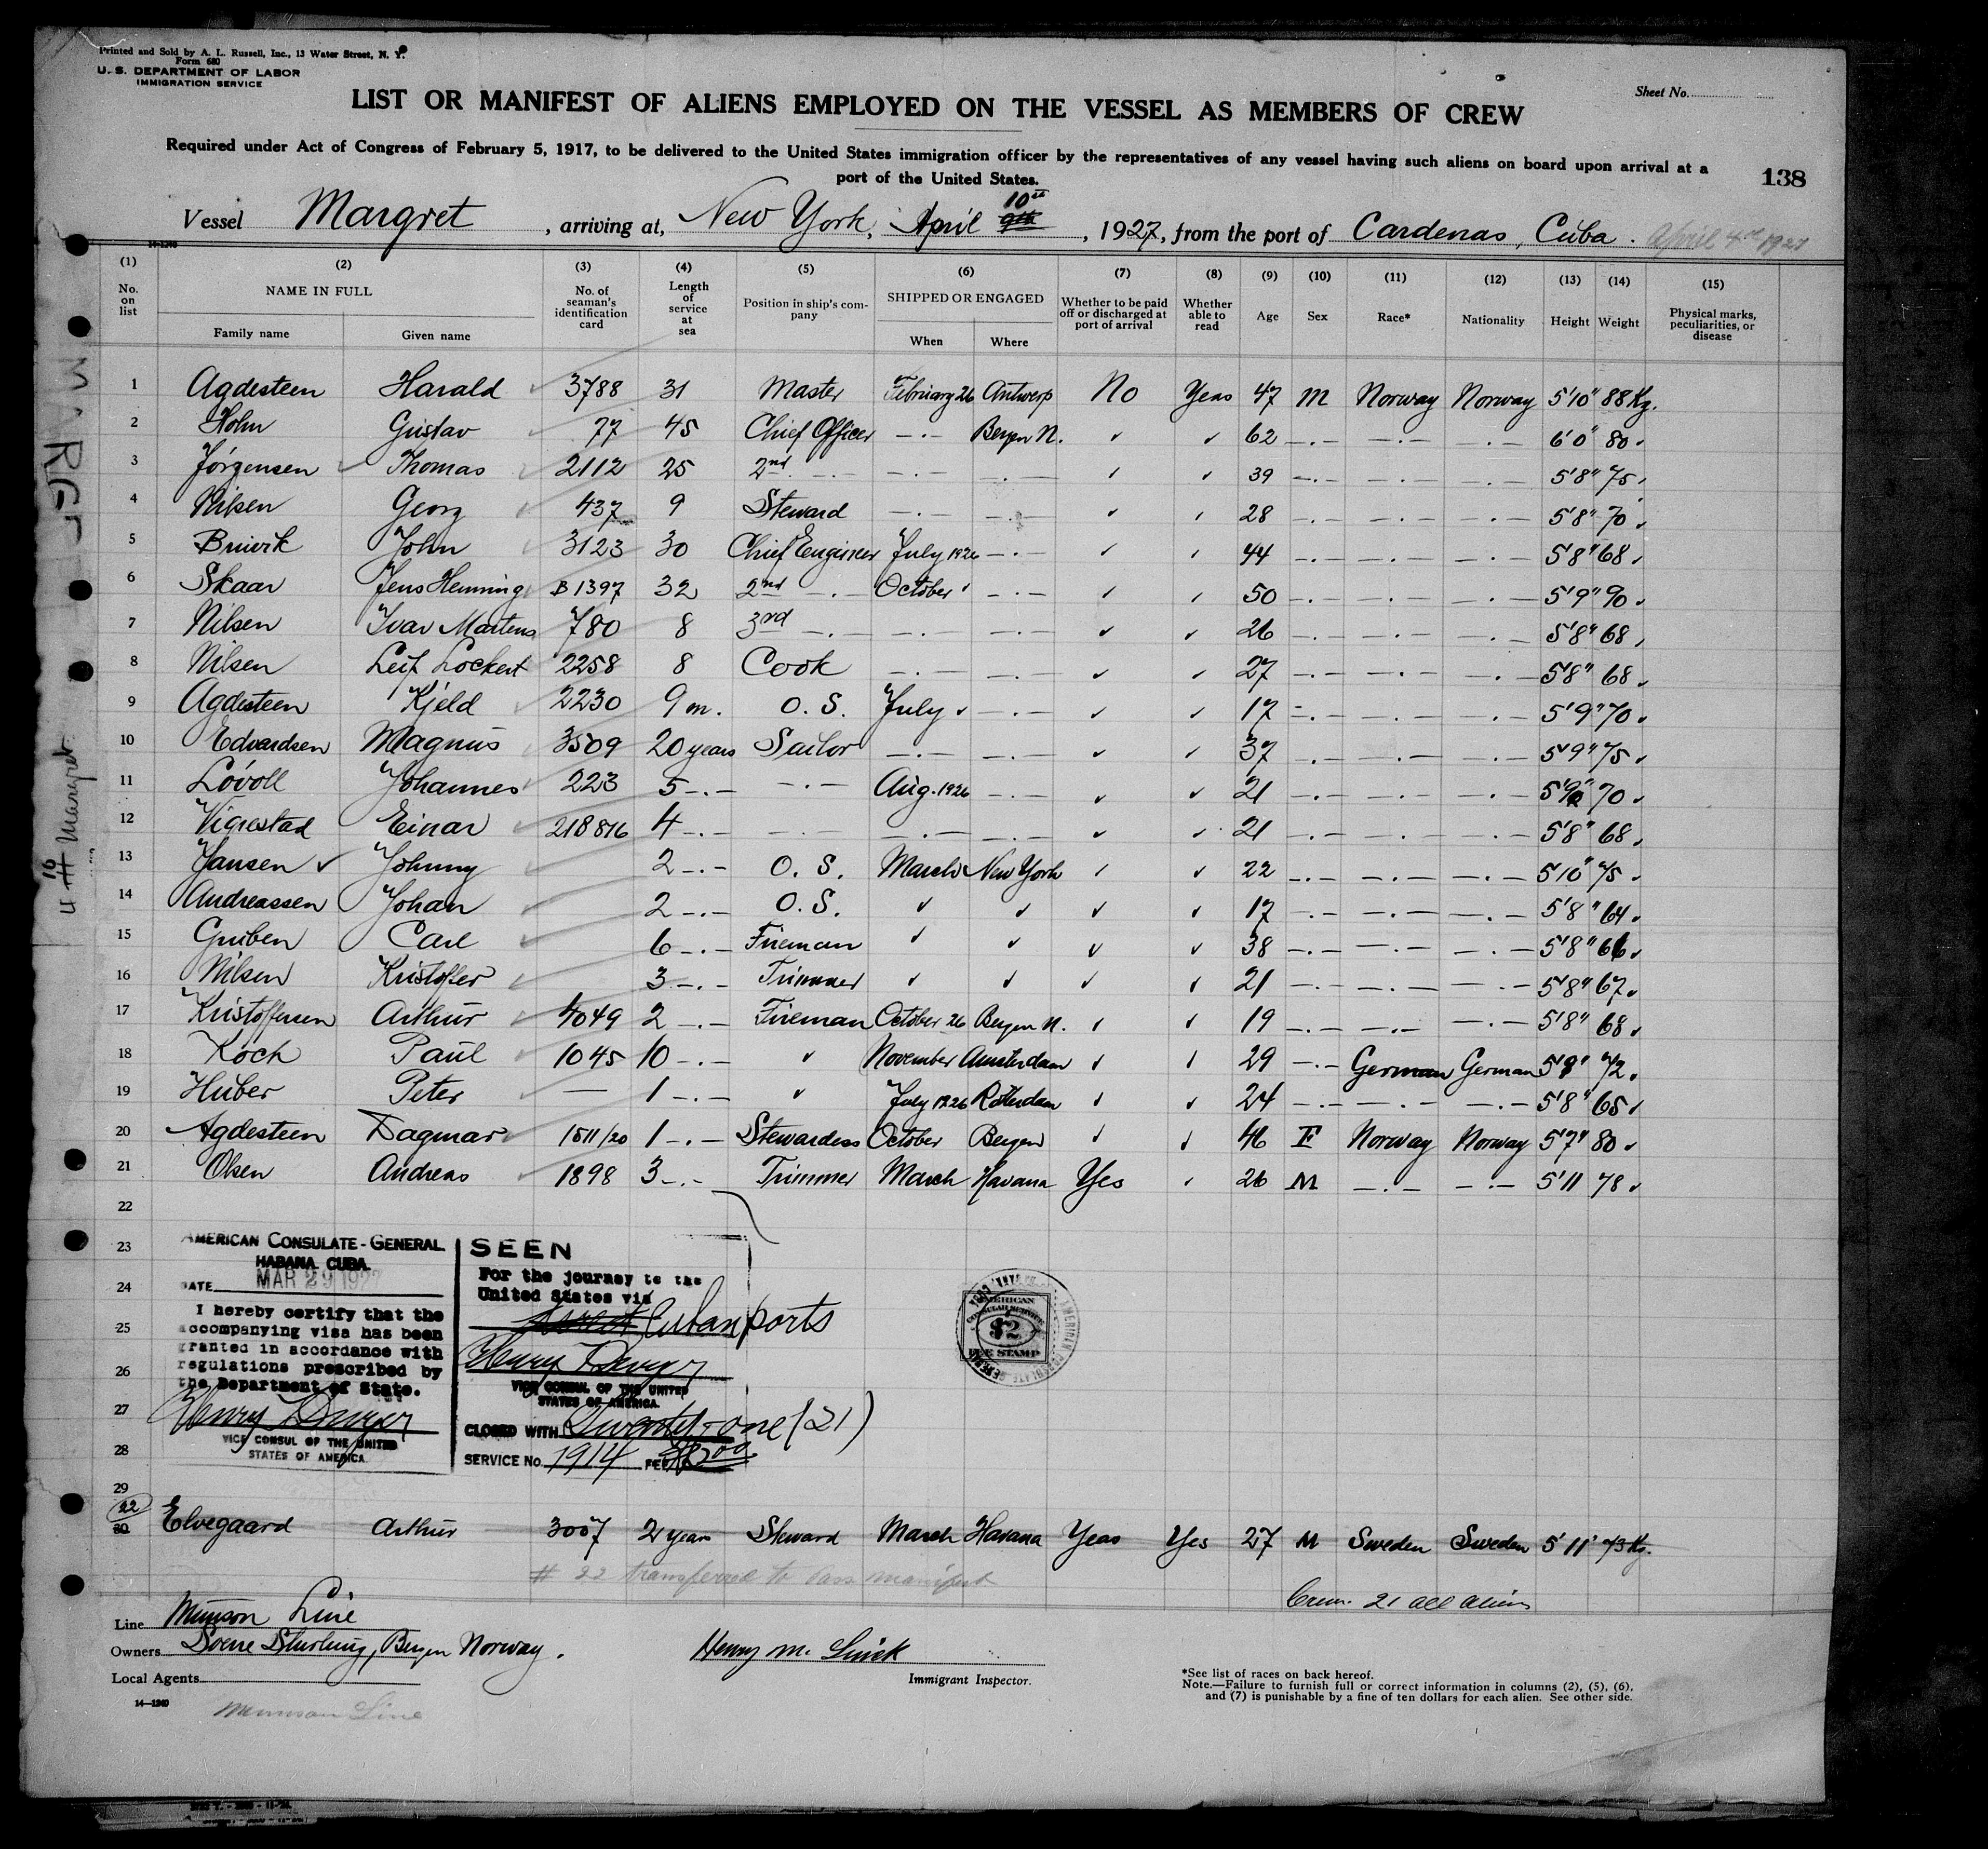 Printed and Sold by A. L. Russell, Inc., 13 Water Street, N. Y.
Form 680
U. S. DEPARTMENT OF LABOR
IMMIGRATION SERVICE
Sheet No.
LIST OR MANIFEST OF ALIENS EMPLOYED ON THE VESSEL AS MEMBERS OF CREW
Required under Act of Congress of February 5, 1917, to be delivered to the United States immigration officer by the representatives of any vessel having such aliens on board upon arrival at a
port of the United States.
138
Vessel Margret, arriving at, New York, April 9th 10th, 1927, from the port of Cardenas, Cuba. April 4th 1927
14-1240
(1) (2) (3) (4) (5) (6) (7) (8) (9) (10) (11) (12) (13) (14) (15)
No. on list NAME IN FULL Family name Given name No. of seaman's identification card Length of service at sea Position in ship's company SHIPPED OR ENGAGED When Where Whether to be paid off or discharged at port of arrival Whether able to read Age Sex Race* Nationality Height Weight Physical marks, peculiarities, or disease
1 Agdesteen Harald 3788 31 Master February 26 Antwerp No Yeas 47 M Norway Norway 5'10" 88 Kg.
2 Holm Gustav 77 45 Chief Officer —.— Bergen N. ✓ ✓ 62 —.— —.— —.— 6'0" 80 ✓
3 Jørgensen ✓ Thomas 2112 25 2nd —.— —.— —.— ✓ ✓ 39 —.— —.— —.— 5'8" 75 ✓
4 Nilsen Georg 437 9 Steward —.— —.— ✓ ✓ 28 —.— —.— —.— 5'8" 70 ✓
5 Bruvik John 3123 30 Chief Engineer July 1926 —.— ✓ ✓ 44 —.— —.— —.— 5'8" 68 ✓
6 Skaar Jens Henning B 1397 32 2nd —.— October ✓ —.— ✓ ✓ 50 —.— —.— —.— 5'9" 90 ✓
7 Nilsen Ivar Martens 780 8 3rd —.— —.— —.— ✓ ✓ 26 —.— —.— —.— 5'8" 68 ✓
8 Nilsen Leif Lockert 2258 8 Cook —.— —.— ✓ ✓ 27 —.— —.— —.— 5'8" 68 ✓
9 Agdesteen Kjeld 2230 9 m. O. S. July ✓ —.— ✓ ✓ 17 —.— —.— —.— 5'9" 70 ✓
10 Edvardsen Magnus 3509 20 years Sailor —.— —.— ✓ ✓ 37 —.— —.— —.— 5'9" 75 ✓
11 Lövoll Johannes 223 5 —.— —.— Aug. 1926 —.— ✓ ✓ 21 —.— —.— —.— 5'9" 70 ✓
12 Vigrestad Einar 218816 4 —.— —.— —.— —.— ✓ ✓ 21 —.— —.— —.— 5'8" 68 ✓
13 Jansen ✓ Johnny 2 —.— O. S. March New York ✓ ✓ 22 —.— —.— —.— 5'10" 75 ✓
14 Andreassen Johan 2 —.— O. S. ✓ ✓ ✓ ✓ 17 —.— —.— —.— 5'8" 64 ✓
15 Gruben Carl 6 —.— Fireman ✓ ✓ ✓ ✓ 38 —.— —.— —.— 5'8" 66 ✓
16 Nilsen Kristoffer 3 —.— Trimmer ✓ ✓ ✓ ✓ 21 —.— —.— —.— 5'8" 67 ✓
17 Kristoffersen Arthur 4049 2 —.— Fireman October 26 Bergen N. ✓ ✓ 19 —.— —.— —.— 5'8" 68 ✓
18 Koch Paul 1045 10 —.— ✓ November Amsterdam ✓ ✓ 29 —.— German German 5'9" 72 ✓
19 Huber Peter — 1 —.— ✓ July 1926 Roterdam ✓ ✓ 24 —.— —.— —.— 5'8" 65 ✓
20 Agdesteen Dagmar 1511/20 1 —.— Stewardess October Bergen ✓ ✓ 46 F Norway Norway 5'7" 80 ✓
21 Olsen Andreas 1898 3 —.— Trimmer March Havana Yes ✓ 26 M —.— —.— 5'11 78 ✓
22
23
24
25
26
27
28
29
AMERICAN CONSULATE-GENERAL
HABANA, CUBA.
DATE MAR 29 1927
I hereby certify that the
accompanying visa has been
granted in accordance with
regulations prescribed by
the Department of State.
VICE CONSUL OF THE UNITED
STATES OF AMERICA
SEEN
For the journey to the
United States via
direct Cuban ports
VICE CONSUL OF THE UNITED
STATES OF AMERICA.
CLOSED WITH Twenty-one (21)
SERVICE No. 1914 FEE $2.00
AMERICAN
CONSULAR SERVICE
$2
FEE STAMP
22 30 Elvegaard Arthur 3007 2 year Steward March Havana Yeas Yes 27 M Sweden Sweden 5'11' 73 Kg.
# 22 transferred to pass manifest
Crew. 21 all aliens
Line Munson Line
Owners Bergen Norway.
Local Agents
14—1240
Munson Line
Immigrant Inspector.
*See list of races on back hereof.
Note.—Failure to furnish full or correct information in columns (2), (5), (6),
and (7) is punishable by a fine of ten dollars for each alien. See other side.
Margret